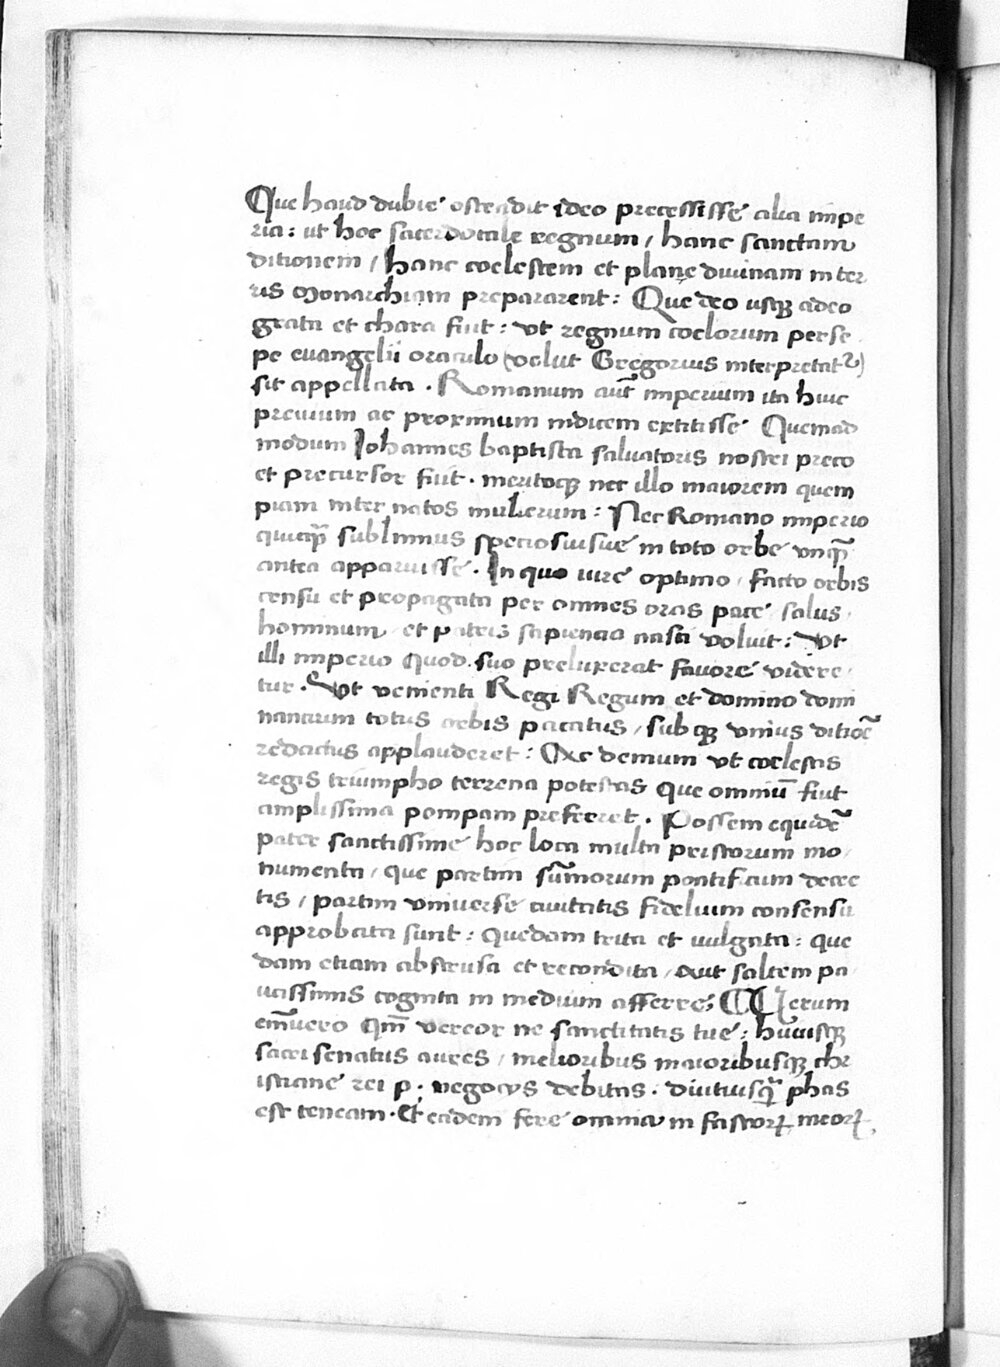 Que haud dubie ostendit ideo precessisse alia impe
ria: ut hoc sacerdotale regnum / hanc sanctam
ditionem / hanc coelestem et plane diuinam in ter
ris monarchiam prepararent: Que deo usqꝫ adeo
grata et chara fuit: vt regnum coelorum perse
pe euangelii oraculo (velut Gregorius interpretatᷣ)
sit appellata. Romanum aūt imperium ita huic
preuium ac proximum indicem extitisse Quemad
modum Iohannes baptista saluatoris nostri preco
et precursor fuit. meritoqꝫ nec illo maiorem quem
piam inter natos mulierum: Nec Romano imperio
quicqꝫ̄ sublimius speciosiusue in toto orbe vnqꝫ̄
antea apparuisse. In quo iure optimo / facto orbis
censu et propagata per omnes oras pace salus
hominum et patris sapiencia nasci voluit: Vt
illi imperio quod suo preluxerat fauore videre
tur. Vt venienti Regi Regum et domino domi
nancium totus orbis pacatus / sub qꝫ vnius ditioē
redactus applauderet: Ac demum vt coelestis
regis triumpho terrena potestas que omniū fuit
amplissima pompam preferret. Possem equidē
pater sanctissime hoc loca multa priscorum mo
numenta / que partim sūmorum pontificum decre
tis / partim vniuerse ciuitatis fidelium consensu
approbata sunt: quedam trita et uulgata: que
dam etiam abstrusa et recondita / aut saltem pa
ucissimis cognita in medium afferre; Uerum
em̄uero qm̄ vereor ne sanctitatis tue: huiusqꝫ
sacri senatus aures / melioribus maioribusqꝫ chr
istiane rei p. negocijs debitas. diutiusqꝫ̄ phas
est teneam. Et eadem fere omnia in fastorꝝ meorꝝ